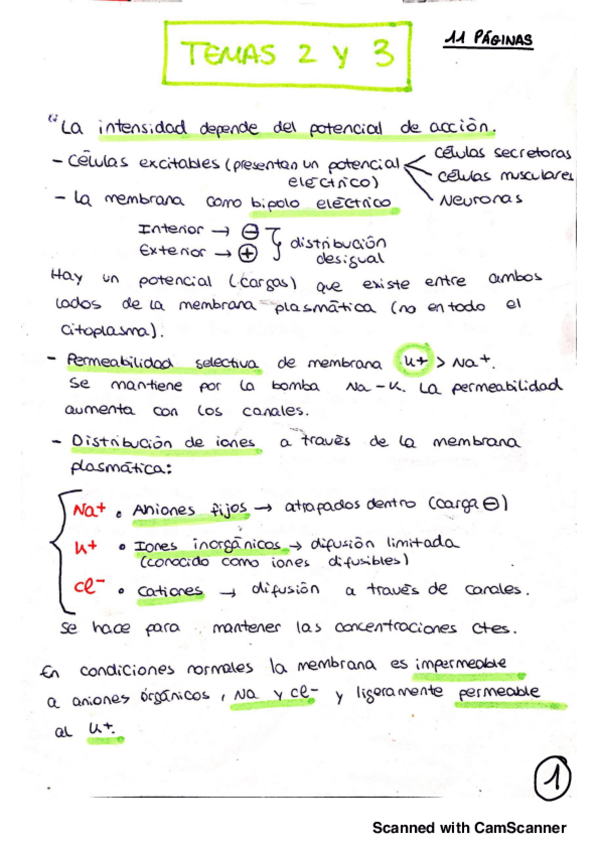 TEMAS 2 Y 3
11 PÁGINAS
"La intensidad depende del potencial de acción.
- Células excitables (presentan un potencial eléctrico)
células secretoras
células musculares
Neuronas
- La membrana como bipolo eléctrico
Interior → ⊖
Exterior → ⊕
distribución desigual
Hay un potencial (cargas) que existe entre ambos
lados de la membrana plasmática (no en todo el
citoplasma).
- Permeabilidad selectiva de membrana K+ > Na+.
Se mantiene por la bomba Na-K. La permeabilidad
aumenta con los canales.
- Distribución de iones a través de la membrana
plasmática:
Na+ • Aniones fijos → atrapados dentro (carga ⊖)
K+ • Iones inorgánicos → difusión limitada
(conocido como iones difusibles)
Cl- • Cationes → difusión a través de canales.
Se hace para mantener las concentraciones ctes.
En condiciones normales la membrana es impermeable
a aniones órgánicos, Na y Cl- y ligeramente permeable
al K+.
1
Scanned with CamScanner